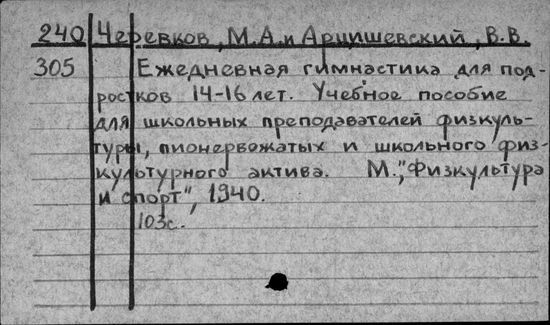 240 Черевков, М.А. и Арцишевский, В.В.
305 Ежедневная гимнастика для под-
ростков 14-16 лет. Учебное пособие
для школьных преподавателей физкуль-
туры, пионервожатых и школьного физ-
культурного актива. М., "Физкультура
и спорт", 1940.
103с.